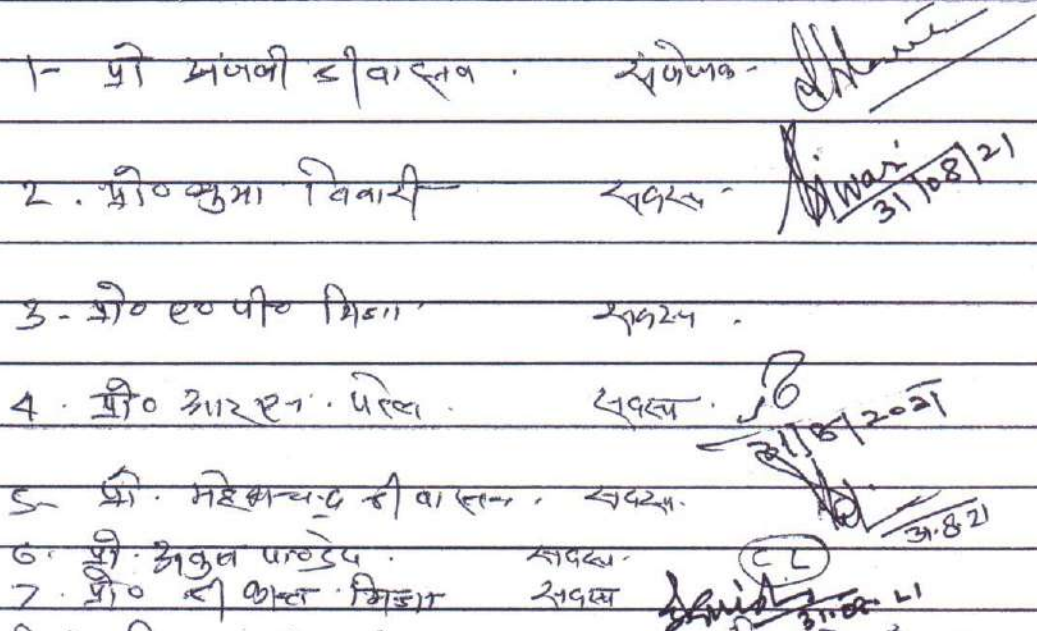 1- प्रो अंजली श्रीवास्तव . संयोजक-
2 . प्रो० सुमा तिवारी सदस्य - Tiwari 31/08/21
3 - प्रो० ए० पी० मिश्रा सदस्य .
4 . प्रो० आर एन . पटेल . सदस्य . 31/8/2021
5- प्रो . महेशचन्द्र श्रीवास्तव . सदस्य . 31.8.21
6 . प्रो . अतुल पाण्डेय . सदस्य . CL
7 . प्रो० श्रीकान्त मिश्रा सदस्य 31.08.21